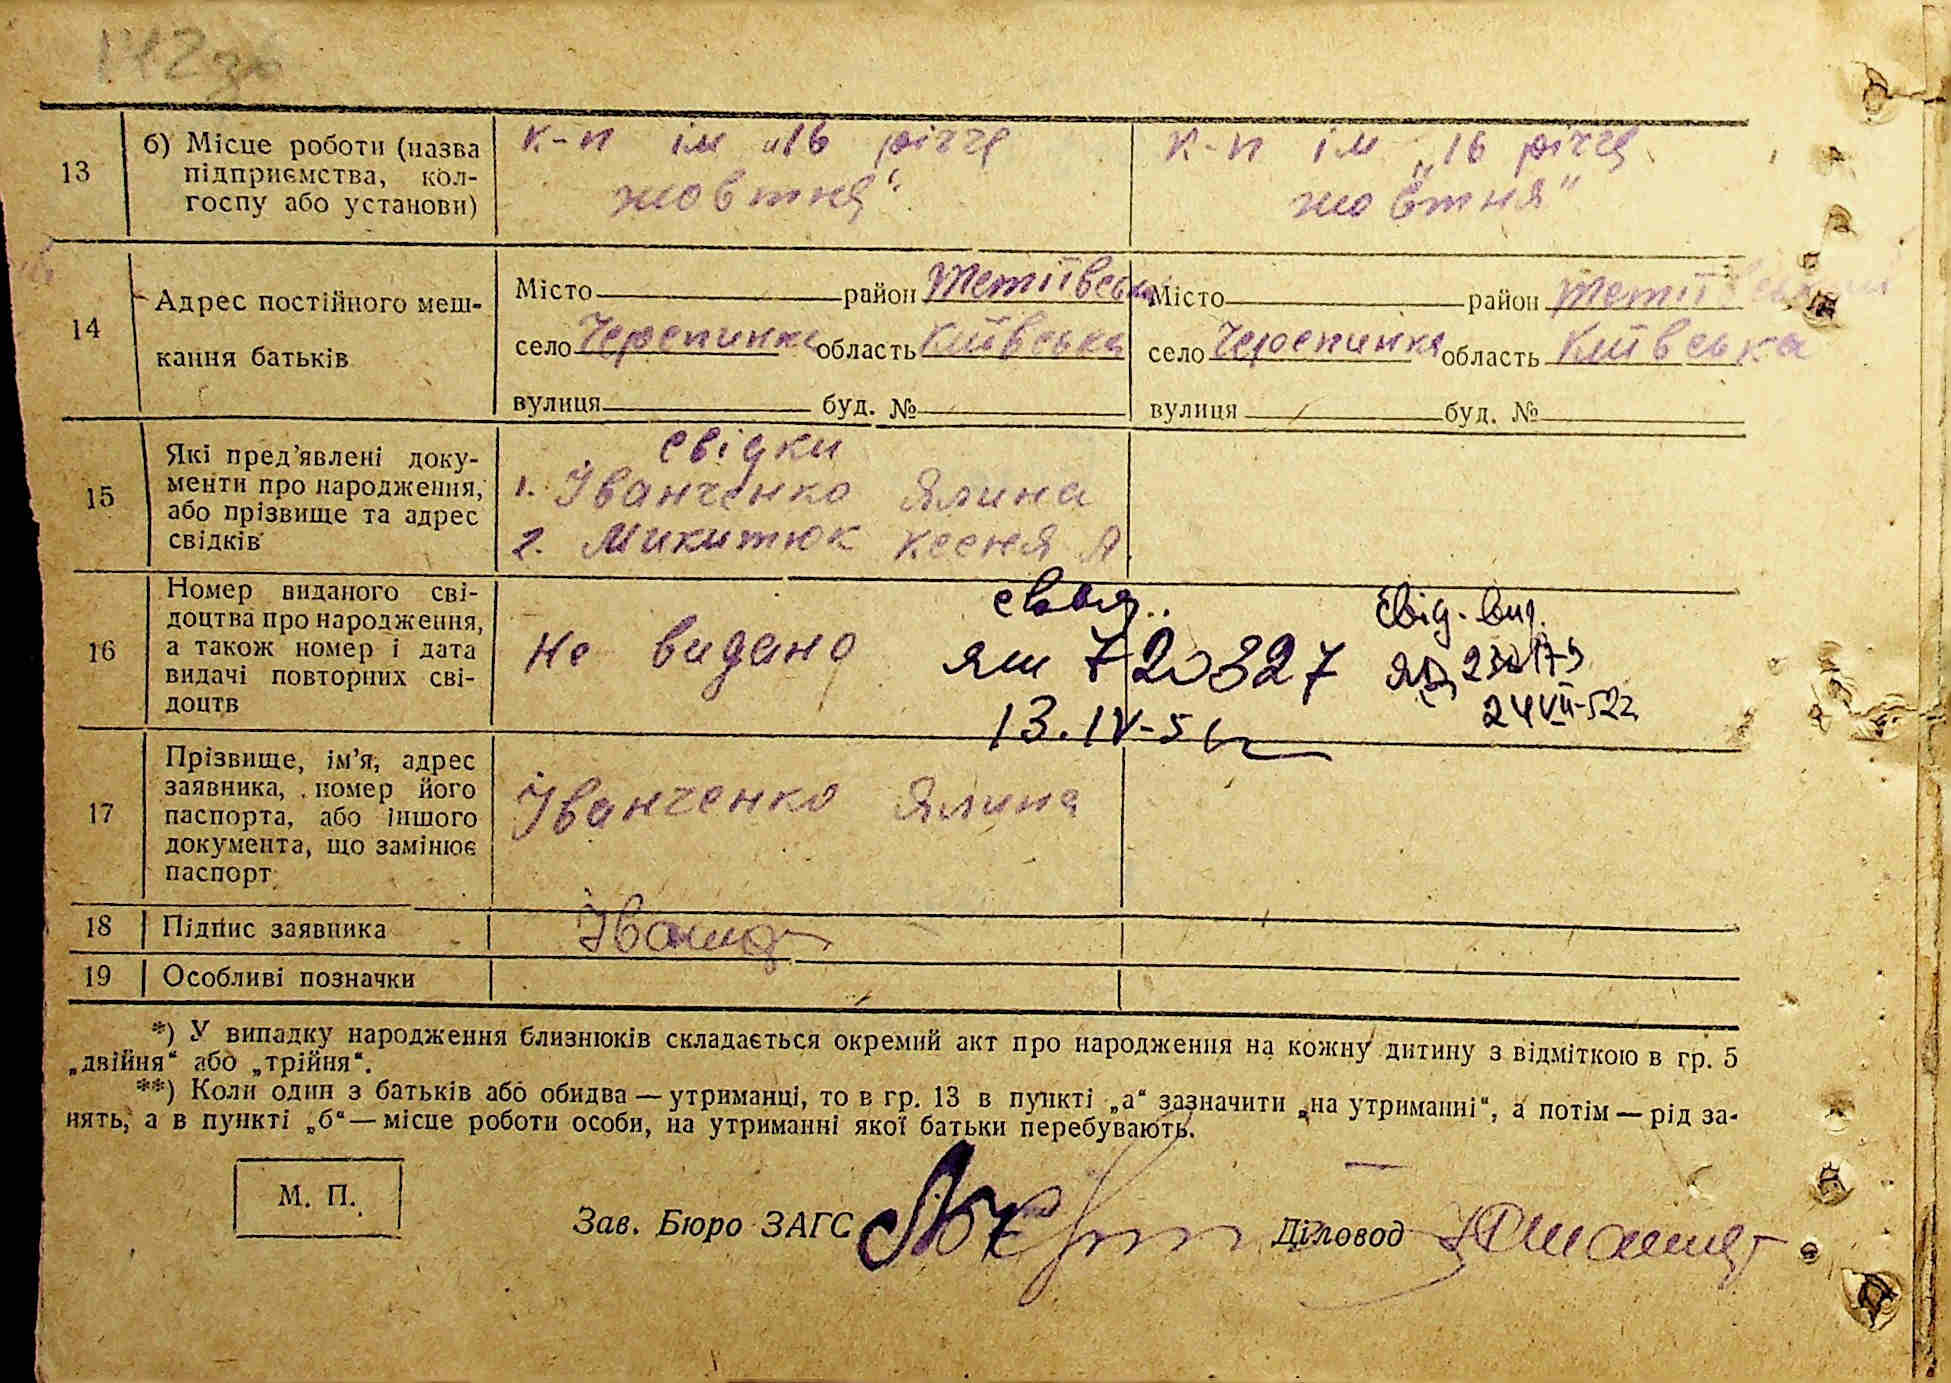 13 б) Місце роботи (назва підприємства, колгоспу або установи)
к-п ім „16 річчя
жовтня“
к-п ім „16 річчя
жовтня“
14 Адрес постійного мешкання батьків
Місто район Тетіївськ
село Черепинка область Київська
вулиця буд. №
Місто район Тетіївський
село Черепинка область Київська
вулиця буд. №
15 Які пред’явлені документи про народження, або прізвище та адрес свідків
свідки
1. Іванченко Ялина
2. Микитюк Ксеня А
16 Номер виданого свідоцтва про народження, а також номер і дата видачі повторних свідоцтв
Не видано
ЯШ 720327
13.IV-5
свід. вид.
24 VII-52г
17 Прізвище, ім’я, адрес заявника, номер його паспорта, або іншого документа, що замінює паспорт
Іванченко Ялина
18 Підпис заявника
19 Особливі позначки
*) У випадку народження близнюків складається окремий акт про народження на кожну дитину з відміткою в гр. 5
„двійня“ або „трійня“.
**) Коли один з батьків або обидва — утриманці, то в гр. 13 в пункті „а“ зазначити „на утриманні“, а потім — рід за-
нять, а в пункті „б“ — місце роботи особи, на утриманні якої батьки перебувають.
М. П.
Зав. Бюро ЗАГС
Діловод